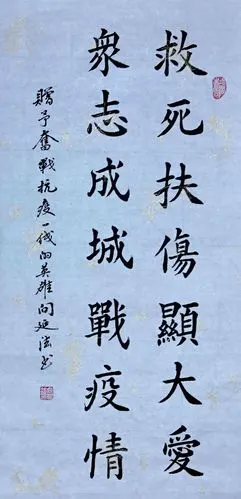 救死扶傷顯大愛
衆志成城戰疫情
贈予奮戰抗疫一綫的英雄 閆延法书